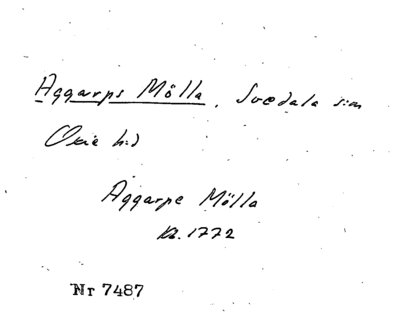 Aggarps Mölla, Svedala sn
Oxie hd
Aggarpe Mölla
Kr. 1772
Nr 7487